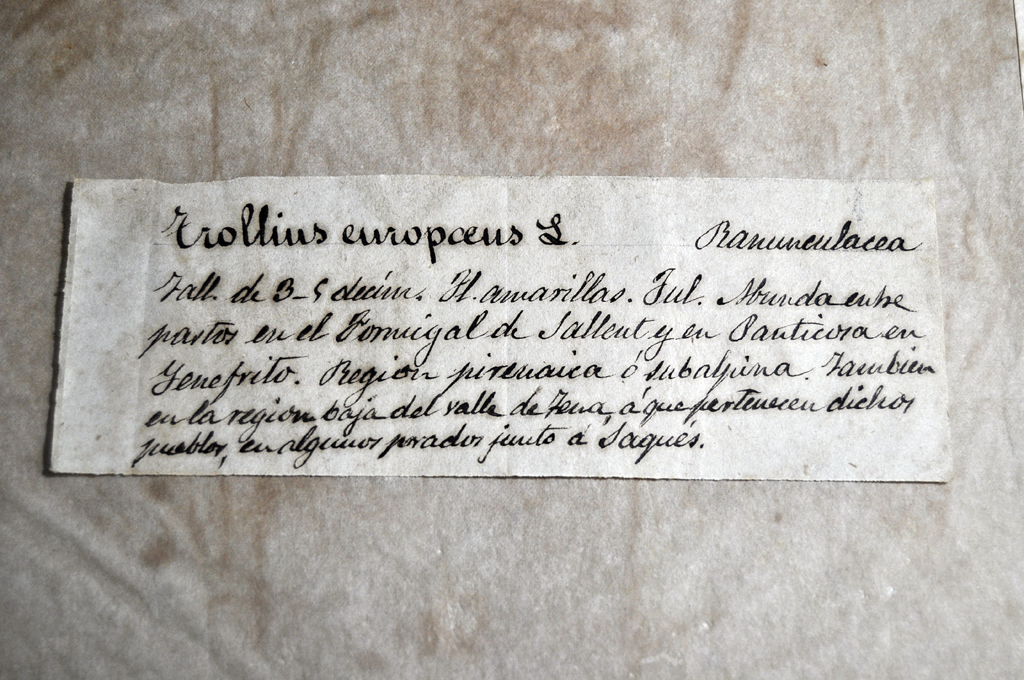 Trollius europæus L. Ranunculacea
Tall. de 3-5 decím. Fl. amarillas. Jul. Abunda entre
pastos en el Formigal de Sallent y en Panticosa en
Yenefrito. Region pirenaica ó subalpina. Tambien
en la region baja del valle de Tena, á que pertenecen dichos
pueblos, en algunos prados junto á Saqués.